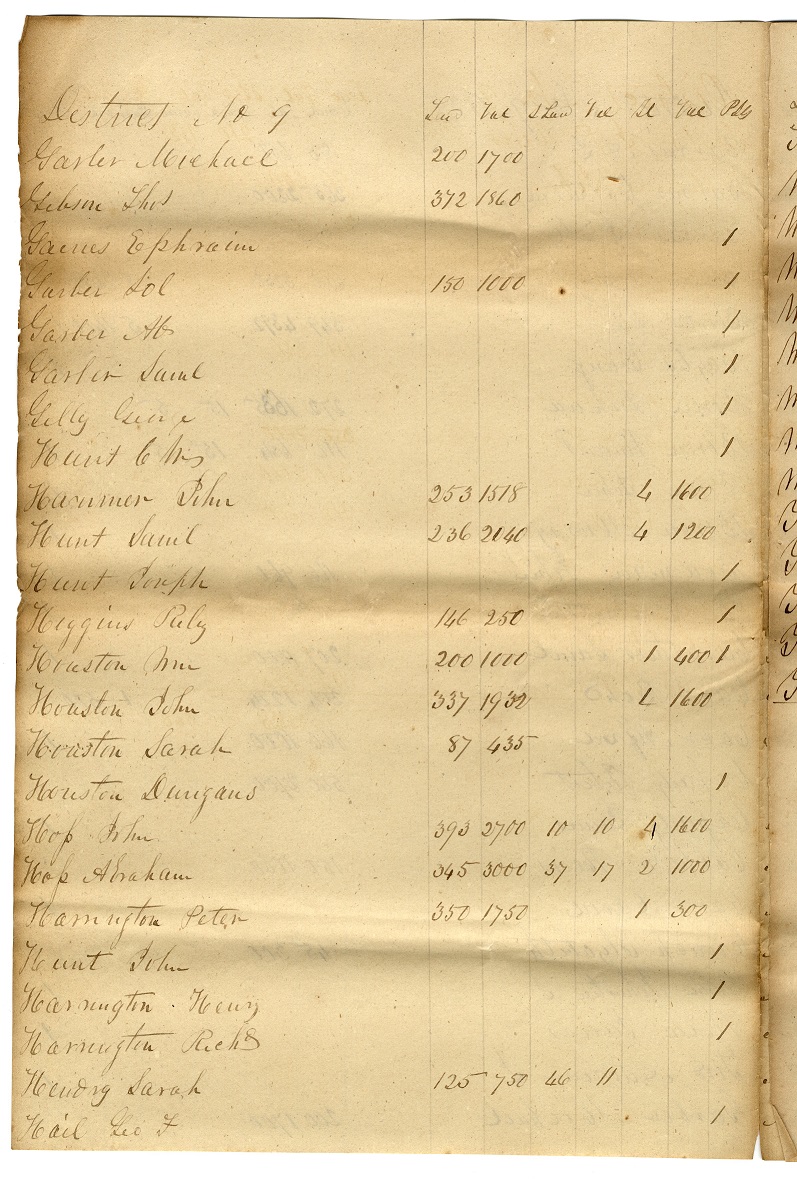 District No 9 Lad Val S Law Val Sl Val Pols
Garber Michael 200 1700
Gibson Thos 372 1860
Gaines Ephraim 1
Garber Sol 150 1000 1
Garber Ab 1
Garber Saml 1
Gilly George 1
Hunt 1
Hammer John 253 1518 4 1600
Hunt Saml 236 2040 4 1200
Hunt Joseph 1
Higgins Riley 146 250 1
Houston Wm 200 1000 1 400 1
Houston John 337 1932 4 1600
Houston Sarah 87 435
Houston 1
Hoss John 393 2700 10 10 4 1600
Hoss Abraham 345 3000 37 17 2 1000
Harrington Peter 350 1750 1 300
Hunt John 1
Harrington Henry 1
Harrington Richd 1
Hendry Sarah 125 750 46 11
Hail Geo F 1